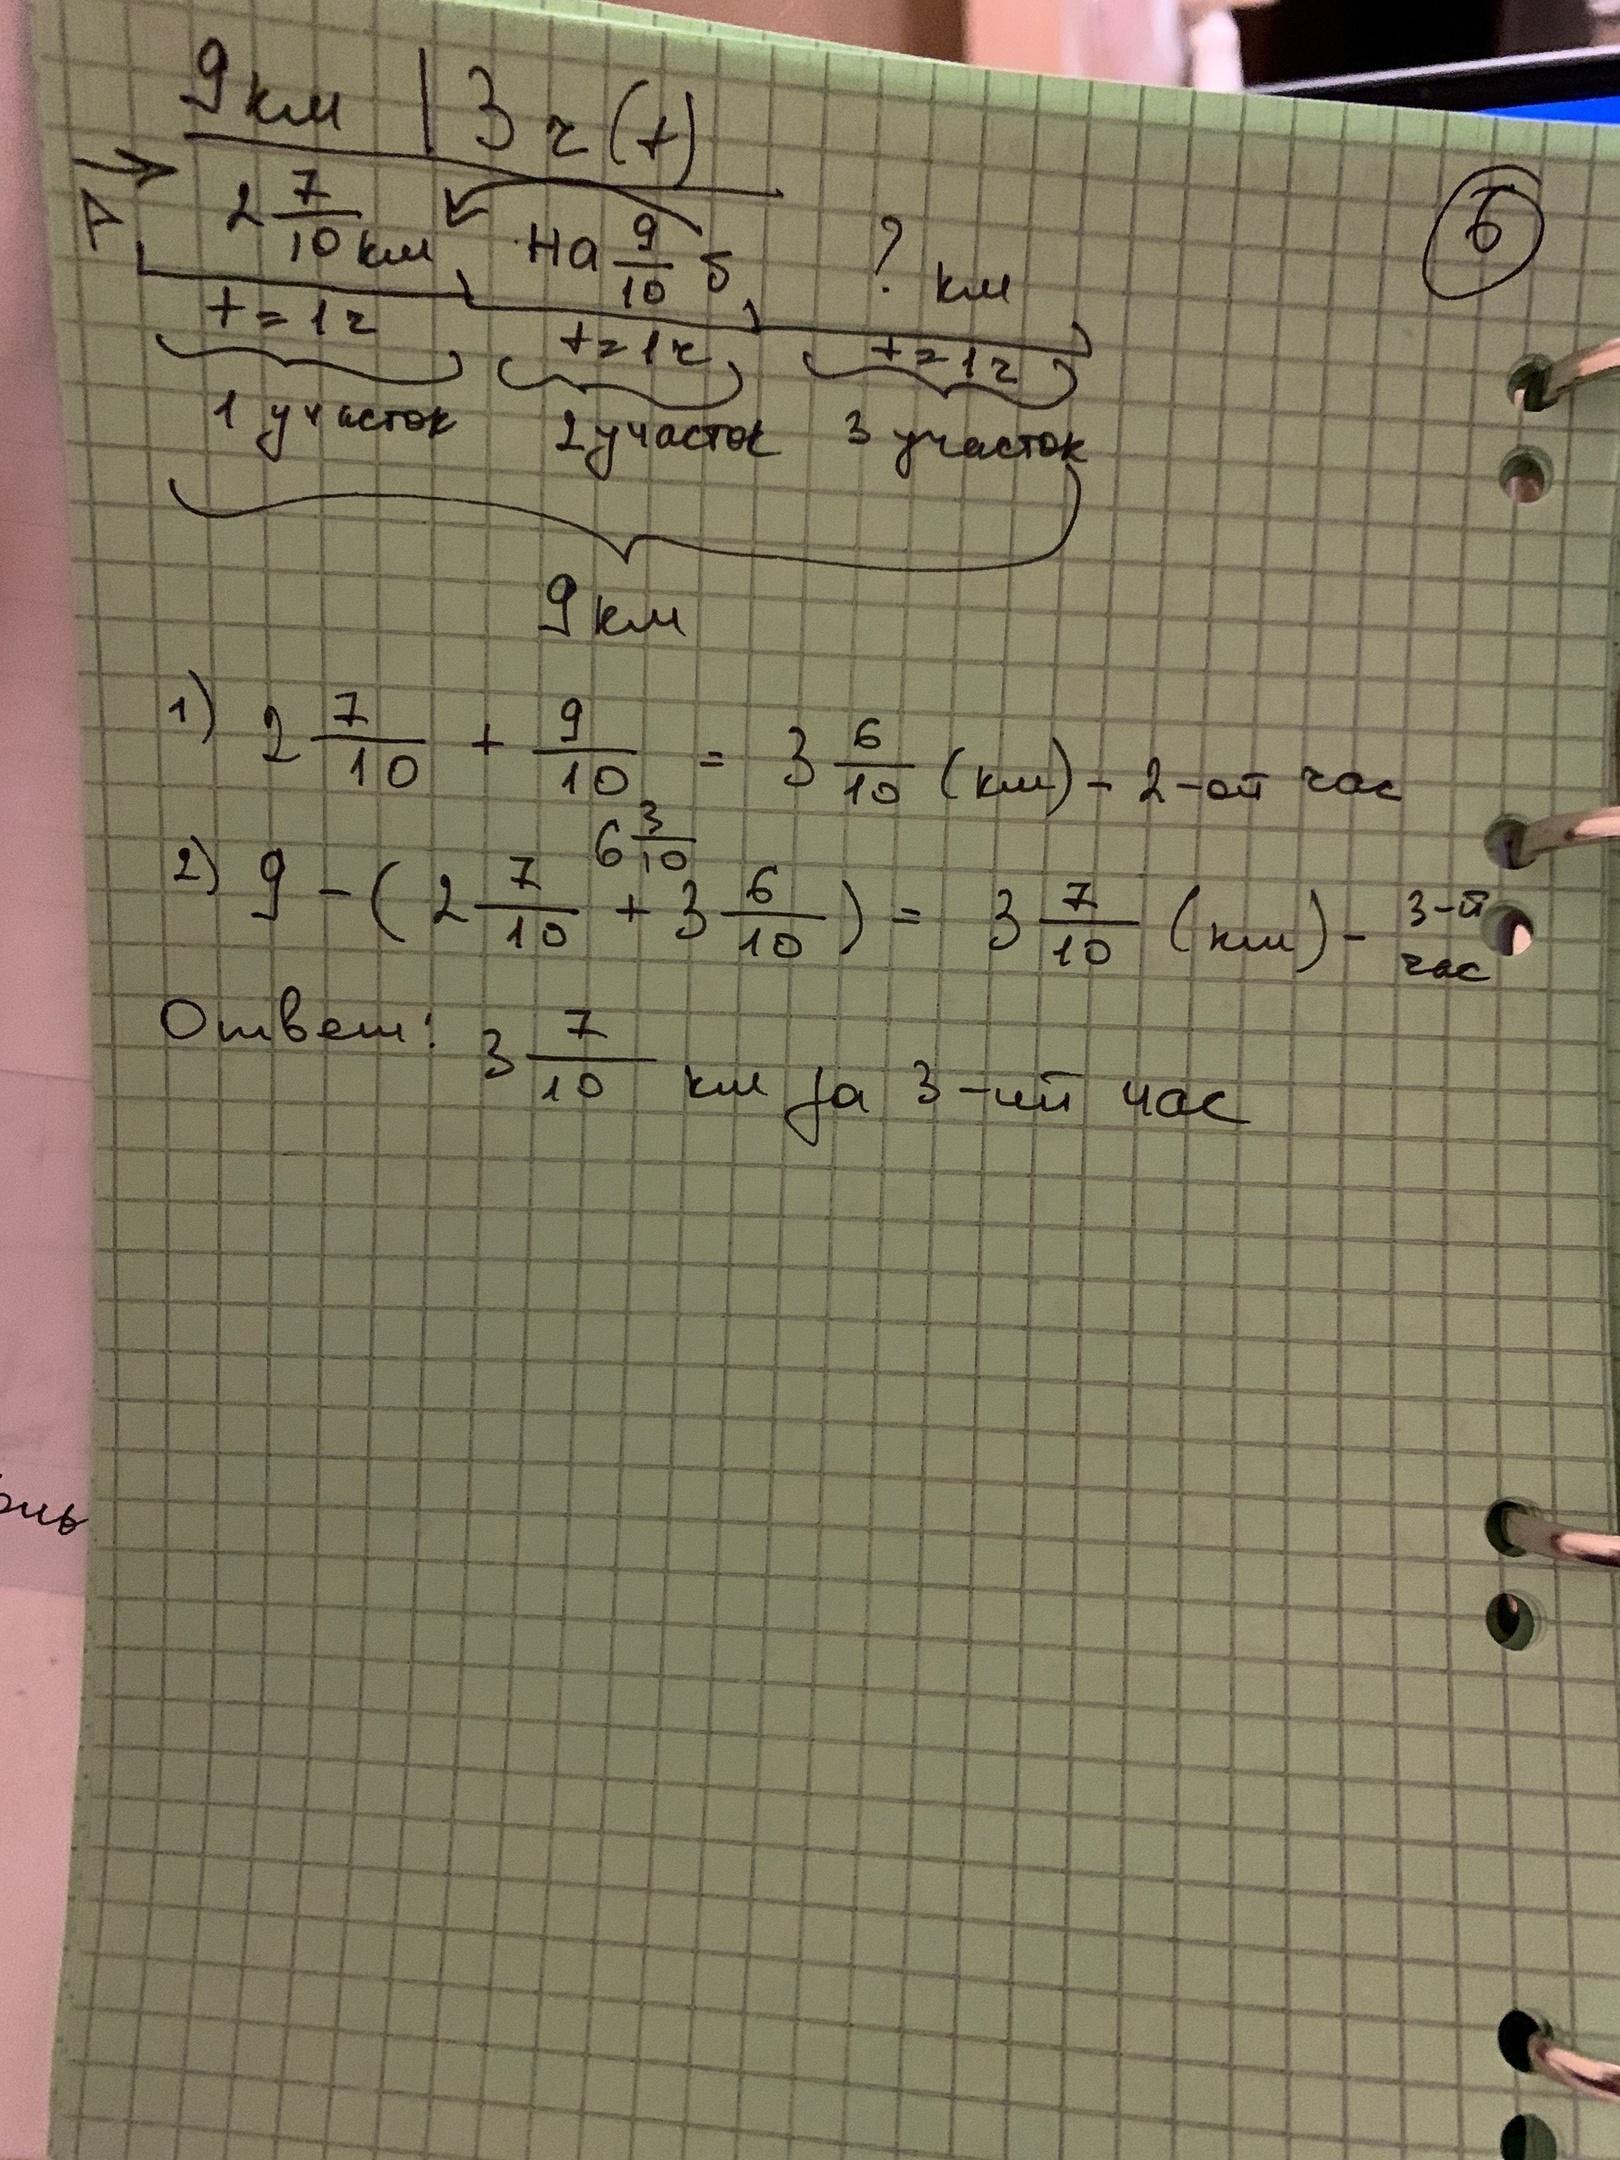 9 км | 3 ч (t)
6
A 2 7/10 км На 9/10 б ? км
t = 1ч t = 1ч t = 1ч
1 участок 2 участок 3 участок
9 км
1) 2 7/10 + 9/10 = 3 6/10 (км) - 2-ой час
6 3/10
2) 9 - (2 7/10 + 3 6/10) = 3 7/10 (км) - 3-й час
Ответ: 3 7/10 км за 3-ий час